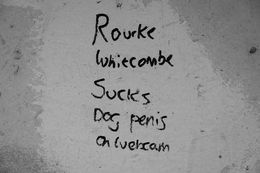 Rourke
Whiecombe
Sucks
Dog penis
on webcam